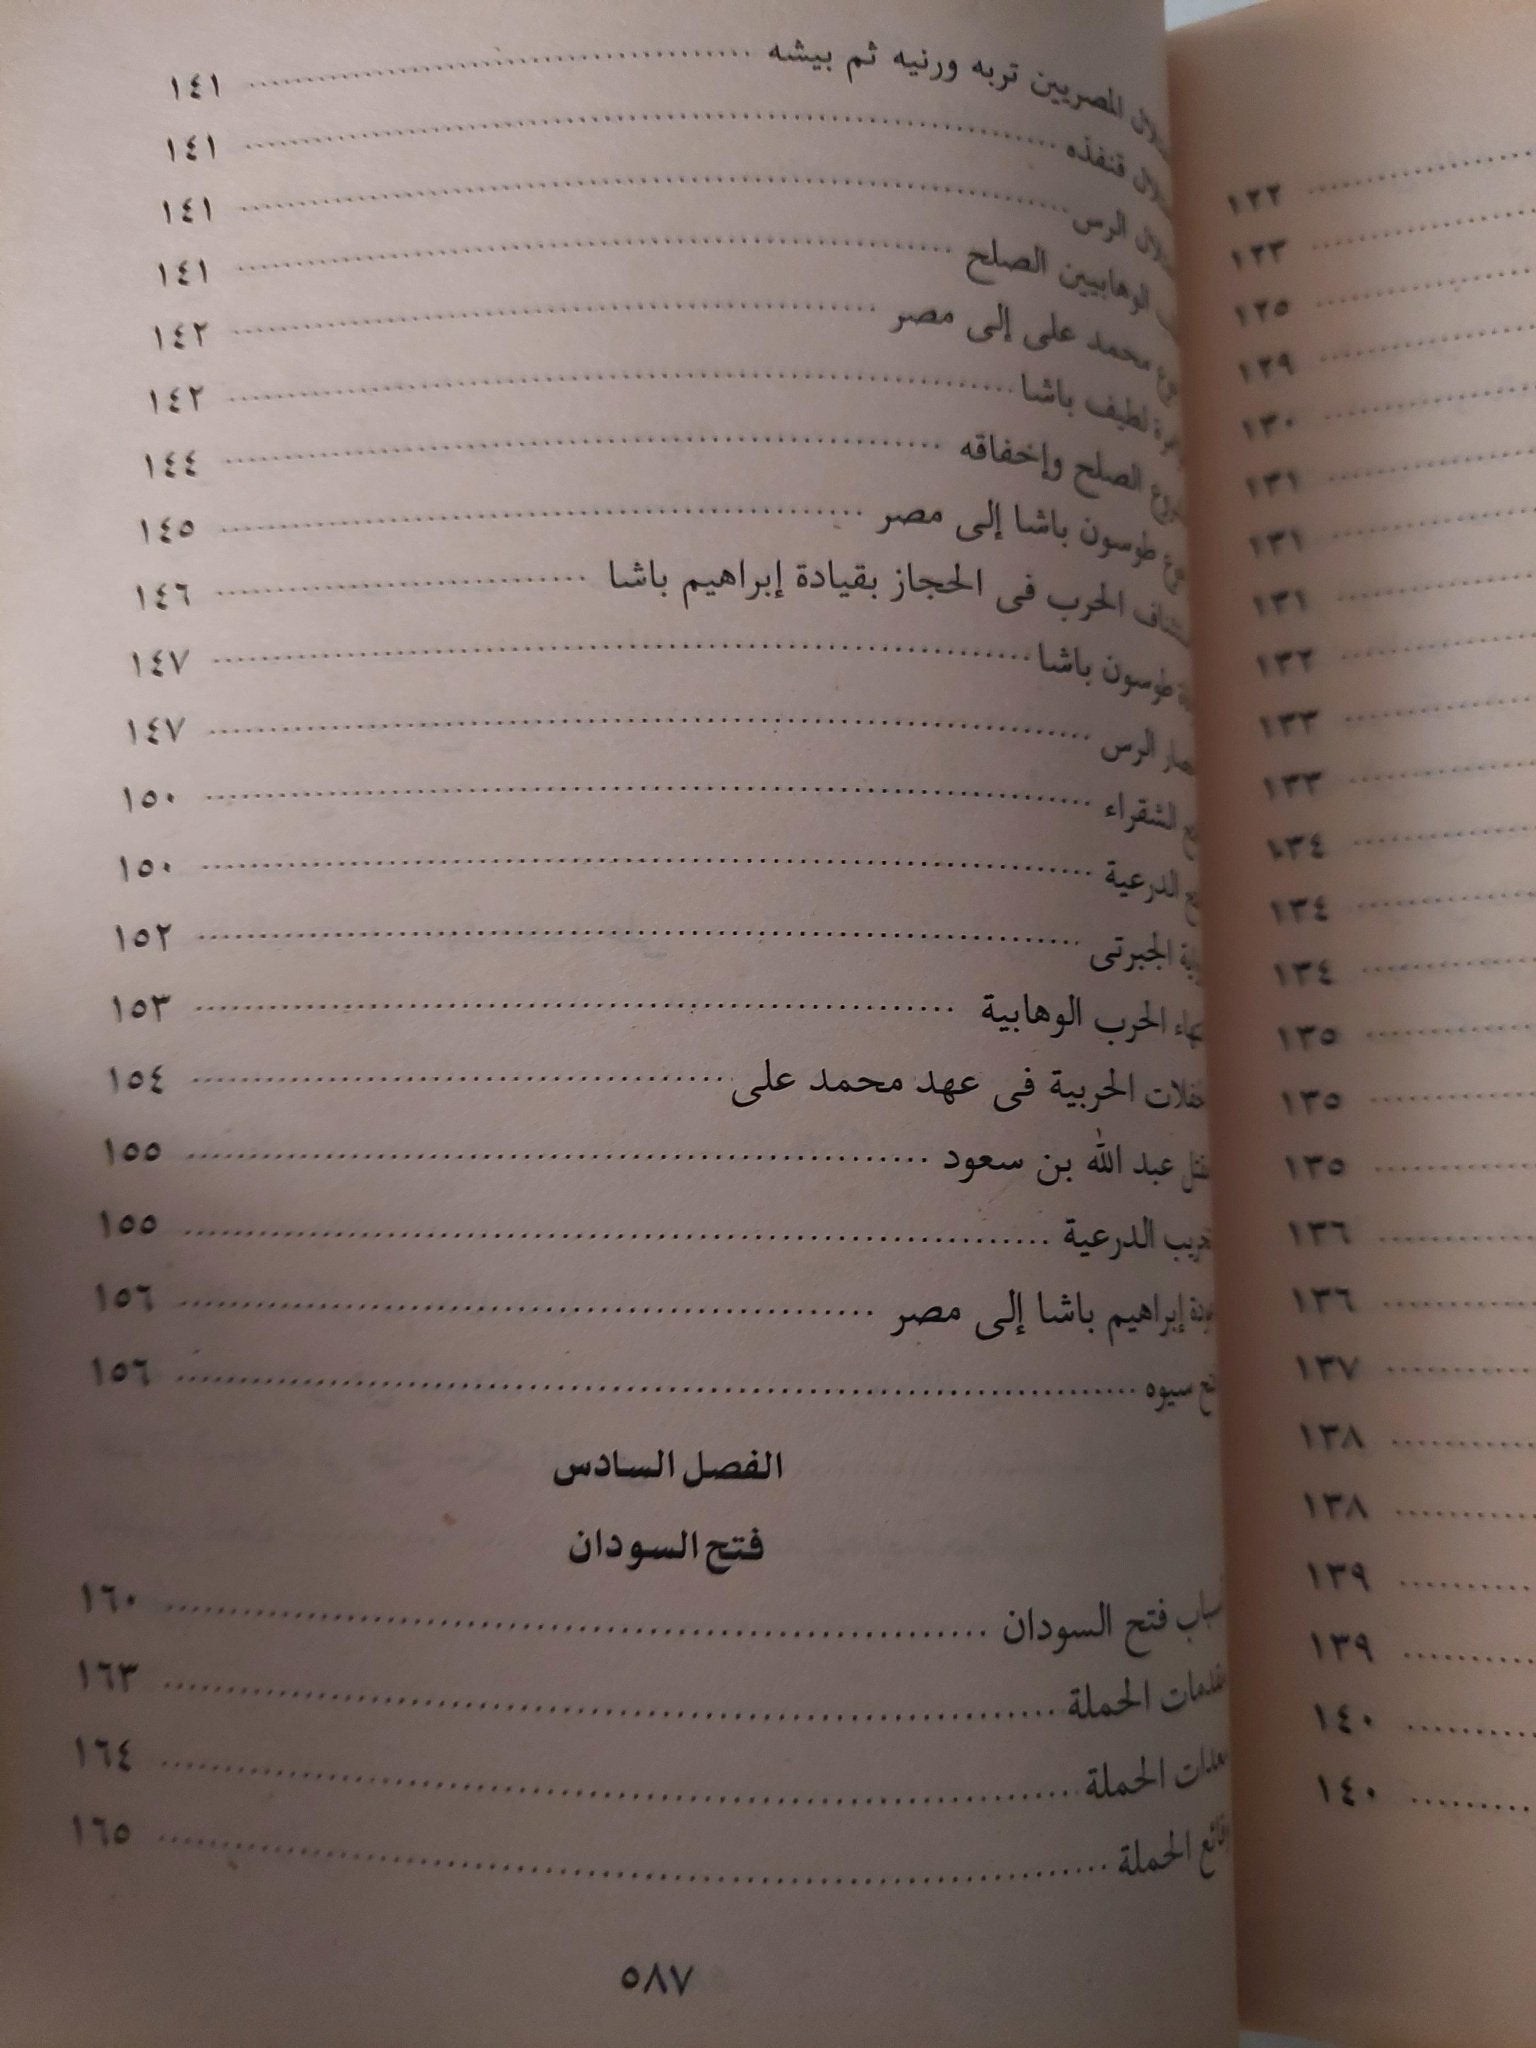 المصريين تربه ورنيه ثم بيشه ١٤١
قنفذه ١٤١
الرس ١٤١
الوهابيين الصلح ١٤١
محمد على إلى مصر ١٤٢
لطيف باشا ١٤٢
الصلح وإخفاقه ١٤٤
طوسون باشا إلى مصر ١٤٥
الحرب فى الحجاز بقيادة إبراهيم باشا ١٤٦
طوسون باشا ١٤٧
الرس ١٤٧
الشقراء ١٥٠
الدرعية ١٥٠
الجبرتى ١٥٢
الحرب الوهابية ١٥٣
الحربية فى عهد محمد على ١٥٤
عبد الله بن سعود ١٥٥
الدرعية ١٥٥
إبراهيم باشا إلى مصر ١٥٦
سيوه ١٥٦
الفصل السادس
فتح السودان
فتح السودان ١٦٠
الحملة ١٦٣
الحملة ١٦٤
الحملة ١٦٥
٥٨٧
١٢٢
١٢٣
١٢٥
١٢٩
١٣٠
١٣١
١٣١
١٣١
١٣٢
١٣٣
١٣٣
١٣٤
١٣٤
١٣٤
١٣٥
١٣٥
١٣٥
١٣٦
١٣٦
١٣٧
١٣٨
١٣٨
١٣٩
١٣٩
١٤٠
١٤٠